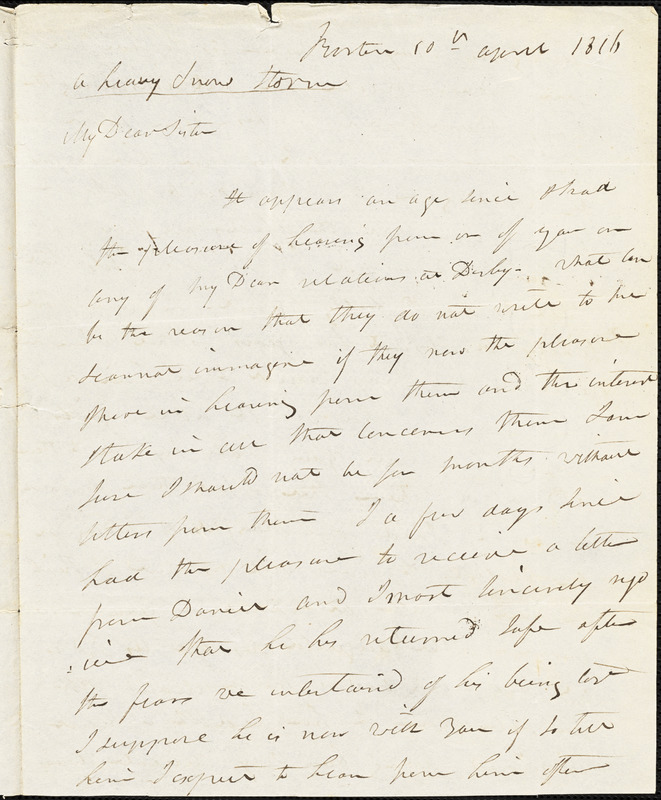 Boston 10th april 1816
a heavy Snow Storm
My Dear Sister
It appears an age since I had
the pleasure of hearing from on of you or
any of my Dear relations at Derby. What can
be the reason that they do not write to me
I cannot immagine if they now the pleasure
I have in hearing from them and the interest
I take in all that concerns them I am
Sure I should not be for months without
letters from them I a few days since
had the pleasure to receive a letter
from Daniel and I most sincerely rejo
:ice that he his returned Safe after
the fears we intertaind of his being lost
I suppose he is now with you if so tell
him I expect to hear from him often